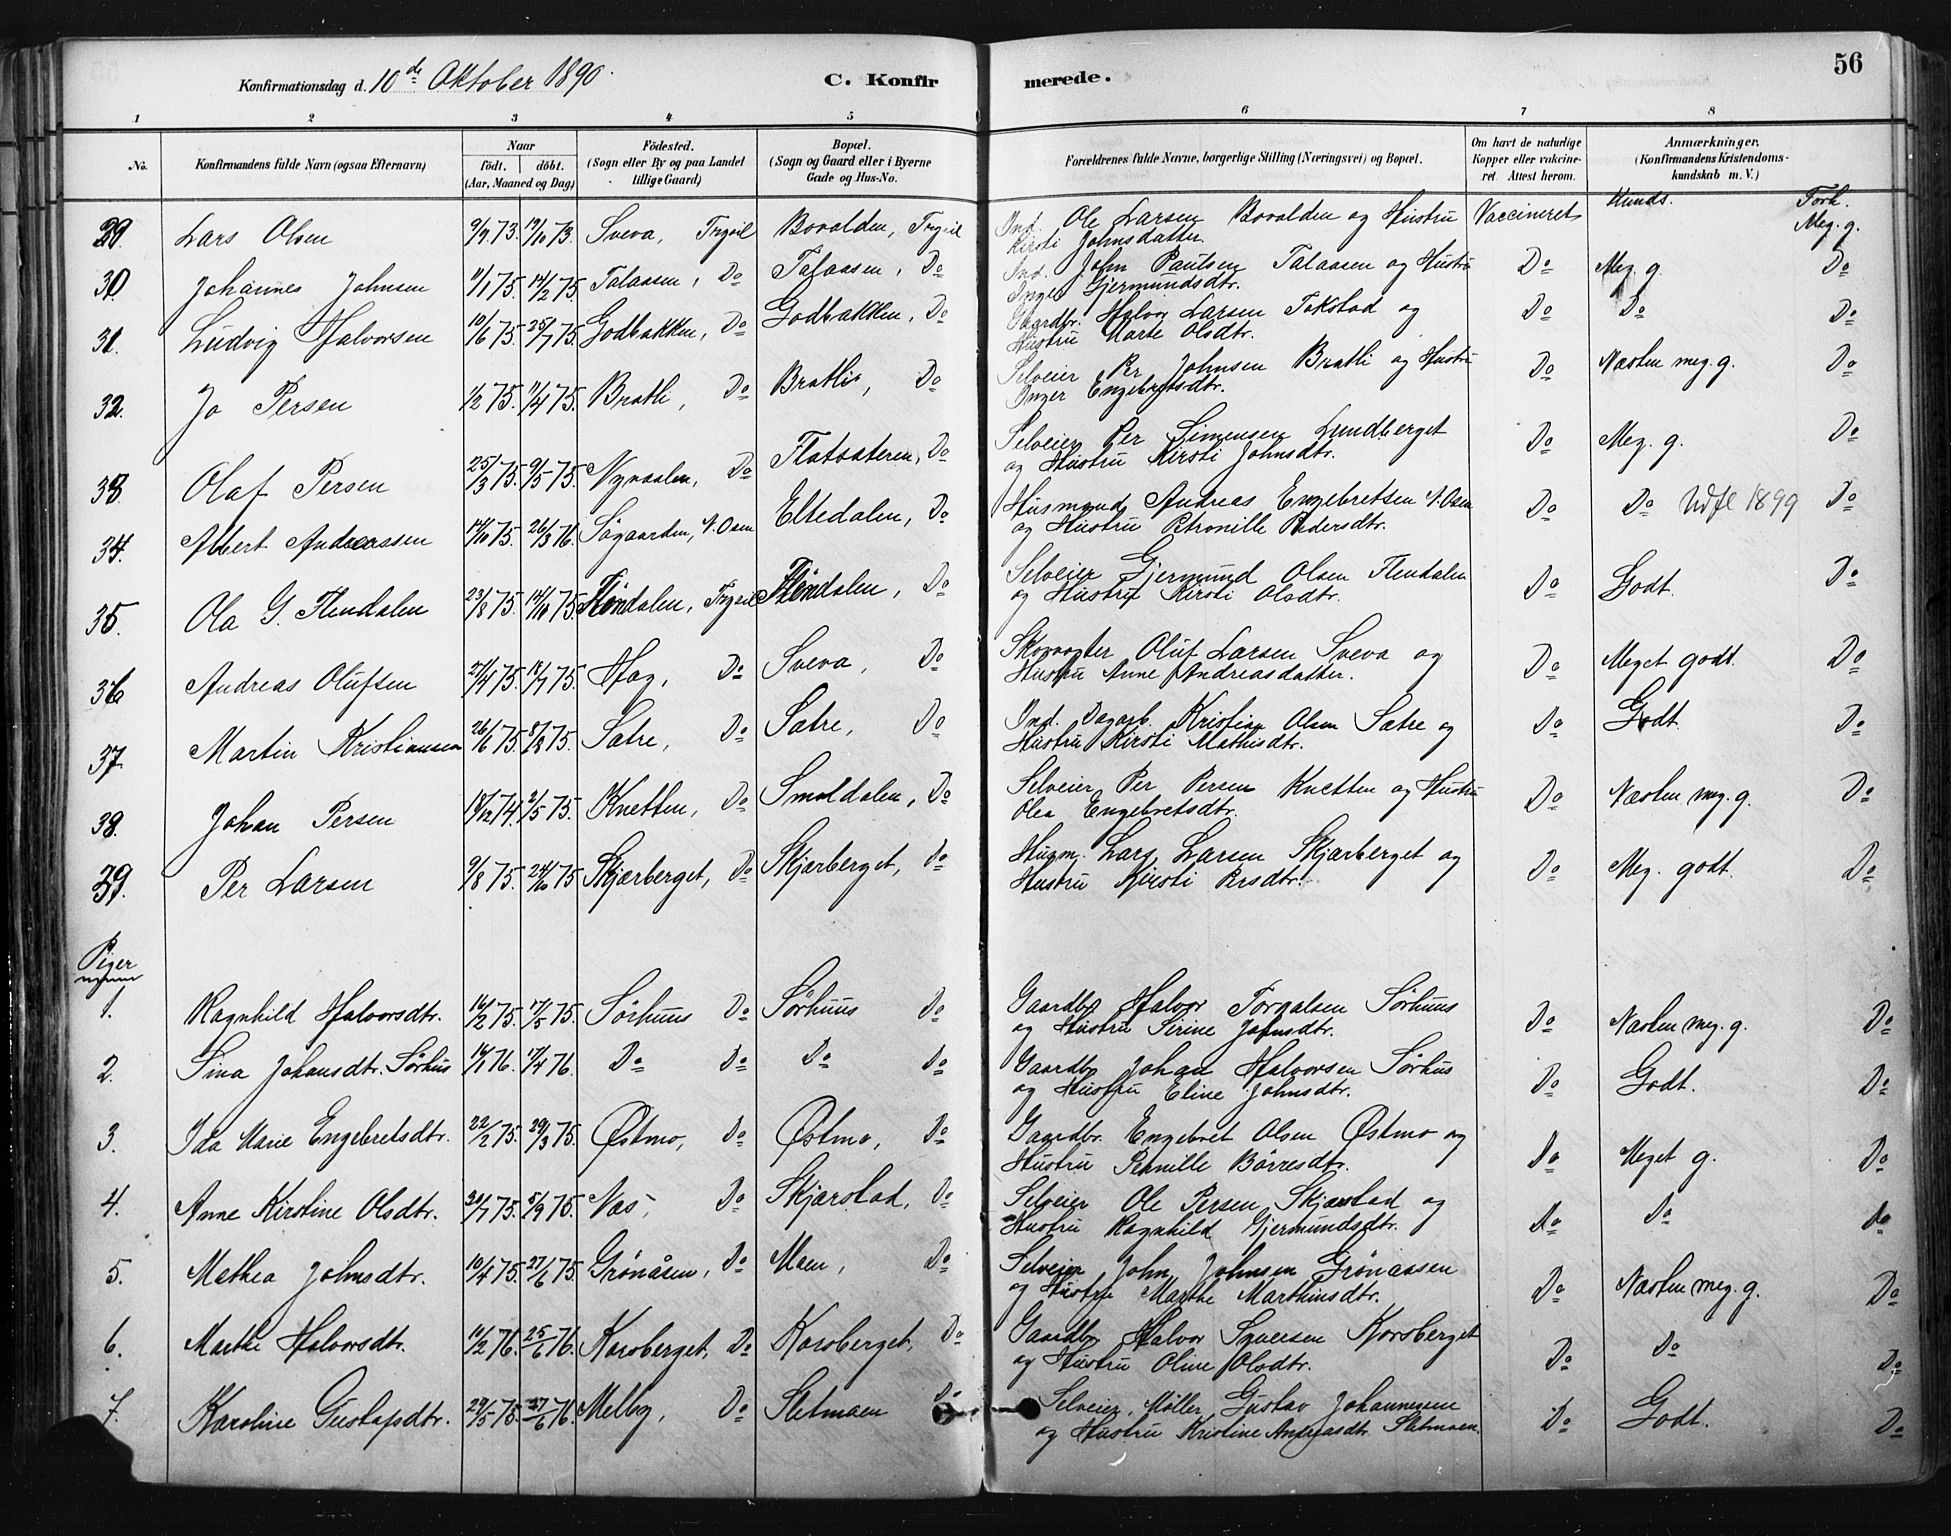 56
Konfirmationsdag d. 10de Oktober 1890.
C. Konfirmerede.
1 2 3 4 5 6 7 8
No. Konfirmandens fulde Navn (ogsaa Efternavn) Naar født. døbt. (Aar, Maaned og Dag) Fødested. (Sogn eller By og paa Landet tillige Gaard) Bopæl. (Sogn og Gaard eller i Byerne Gade og Hus-No. Forældrenes fulde Navne, borgerlige Stilling (Næringsvei) og Bopæl. Om havt de naturlige Kopper eller vakcineret. Attest herom. Anmærkninger. (Konfirmandens Kristendomskundskab m. V.)
Kunds. Forh.
29. Lars Olsen 9/9 73. 19/10 73. Sveva, Trysil Bovalden, Trysil Ind. Ole Larsen Bovalden og Hustru Vaccineret Meg. g.
Kirsti Johnsdatter.
30. Johannes Johnsen 11/1 75. 14/2 75. Talaasen, Do Talaasen, Do Ind. John Paulsen Talaasen og Hustru Do Meg. g. Do
Inger Gjermundsdtr.
31. Ludvig Halvorsen 10/6 75. 25/7 75. Godbakken, Do Godbakken, Do Gaardbr. Halvor Larsen Tokstad og Do Do Do
Hustru Marte Olsdtr.
32. Jo Persen 1/2 75. 11/4 75. Bratli, Do Bratli, Do Selveier Per Johnsen Bratli og Hustru Do Næsten meg. g. Do
Inger Engebretsdtr.
33. Olaf Persen 25/3 75. 9/5 75. Nysaalen, Do Flatsæteren, Do Selveier Per Simensen Lundberget Do Meg. g. Do
og Hustru Kirsti Johnsdtr.
34. Albert Andreassen 14/10 75. 26/3 76. Søgaarden, N. Osen Eltedalen, Do Husmand Andreas Engebretsen N. Osen Do Do Udfl 1899 Do
og Hustru Petronille Pedersdtr.
35. Ola G. Flendalen 23/8 75. 14/10 75. Fløndalen, Trysil Fløndalen, Do Selveier Gjermund Olsen Flendalen Do Godt. Do
og Hustru Kirsti Olsdtr.
36 Andreas Olufsen 27/4 75. 18/7 75. Hag, Do Sveva, Do Skovvogter Oluf Larsen Sveva og Do Meget godt. Do
Hustru Anne Andreasdatter.
37 Martin Kristiansen 26/6 75. 8/8 75. Sætre, Do Sætre, Do Ind. Dagarb. Kristian Olsen Sætre og Do Godt Do
Hustru Kirsti Mathisdtr.
38. Johan Persen 18/12 74. 2/5 75. Knetten, Do Smaldalen, Do Selveier Per Persen Knetten og Hustru Do Næsten meg. g. Do
Olea Engebretsdtr.
39. Per Larsen 9/8 75. 24/10 75 Skjærberget, Do Skjærberget, Do Husm. Lars Larsen Skjærberget og Do Meg. godt. Do
Hustru Kjersti Persdtr.
Piger
1. Ragnhild Halvorsdtr. 16/2 75. 17/5 75. Sørhuus Do Sørhuus Do Gaardbr Halvor Torgalsen Sørhuus Do Næsten meg. g. Do
og Hustru Serine Johnsdtr.
2. Sina Johansdtr. Sørhus 14/1 76. 17/4 76. Do Do Do Do Gaardbr Johan Halvorsen Sørhus Do Godt. Do
og Hustru Eline Johnsdtr.
3. Ida Marie Engebretsdtr. 22/2 75. 29/3 75. Østmo, Do Østmo, Do Gaardbr. Engebret Olsen Østmo og Do Meget g. Do
Hustru Pernille Børresdtr.
4. Anne Kirstine Olsdtr. 30/7 75. 5/9 75. Næs, Do Skjærstad, Do Selveier Ole Persen Skjæstad og Do Do Do
Hustru Ragnhild Gjermundsdtr.
5. Mathea Johnsdtr. 10/4 75. 27/6 75. Grønåsen, Do Moen, Do Selveier John Johnsen Grønaasen Do Næsten meg. g. Do
og Hustru Marthe Marthinsdtr.
6. Marthe Halvorsdtr. 10/2 76. 25/6 76. Korsberget, Do Korsberget, Do Gaardbr Halvor Syversen Korsberget Do Do Do
og Hustru Oline Olsdtr.
7. Karoline Gustafsdtr. 29/5 75. 27/6 76. Melby, Do Sletmoen Do Selveier, Møller Gustav Johannesen Do Godt. Do
og Hustru Kristine Andreasdtr. Sletmoen.